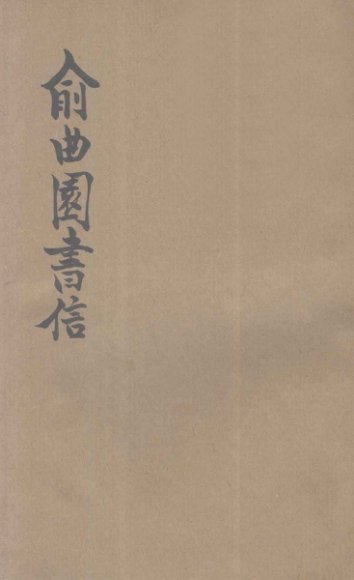 俞曲園書信